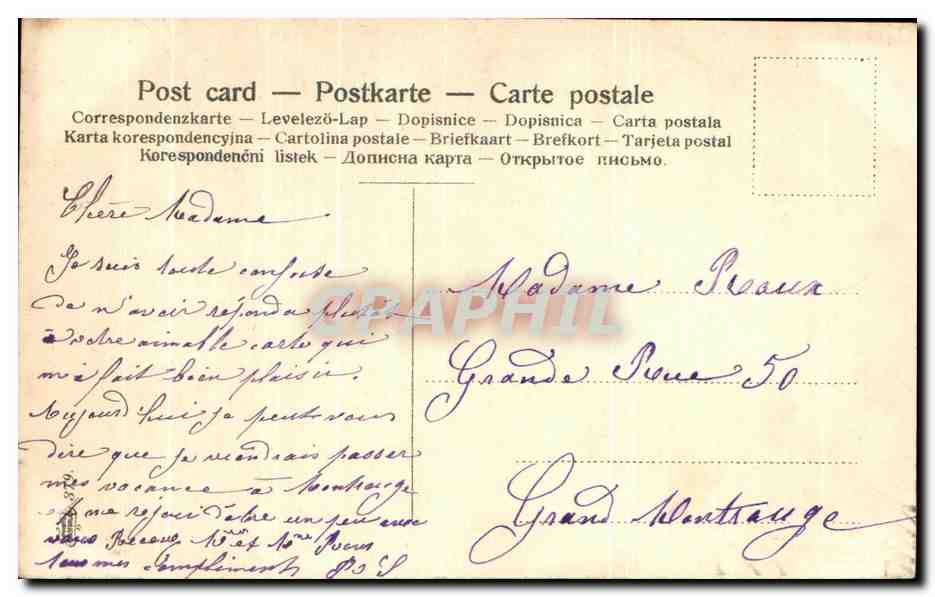 Post card — Postkarte — Carte postale
Correspondenzkarte — Levelező-Lap — Dopisnice — Dopisnica — Carta postala
Karta korespondencyjna — Cartolina postale — Briefkaart — Brefkort — Tarjeta postal
Korespondenční listek — Дописна карта — Открытое письмо.
Chère Madame
Je suis toute confuse
de n'avoir répondu plutôt
à votre aimable carte qui
m'a fait bien plaisir.
Aujourd'hui je peut vous
dire que je viendrais passer
mes vacance à Montrouge
me réjoui d'être un peu avec
vous Recevez et Mme
tous mes compliments
Madame Roux
Grande Rue 50
Grand Montrouge
CPAPHIL